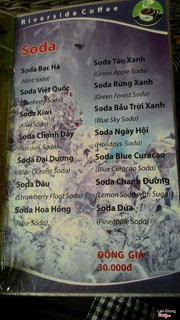 Riverside Coffee
Soda
Soda Bạc Hà
(Mint Soda)
Soda Việt Quốc
(Blueberry Soda)
Soda Kiwi
(Kiwi Soda)
Soda Chanh Dây
(Passion Soda)
Soda Đại Dương
(Blue Oceans Soda)
Soda Dâu
(Strawberry Float Soda)
Soda Hoa Hồng
(Rose Soda)
Soda Táo Xanh
(Green Apple Soda)
Soda Rừng Xanh
(Green Forest Soda)
Soda Bầu Trời Xanh
(Blue Sky Soda)
Soda Ngày Hội
(Holidays Soda)
Soda Blue Curacao
(Blue Curacao Soda)
Soda Chanh Đường
(Lemon Soda with Sugar)
Soda Dứa
(Pineapple Soda)
ĐỒNG GIÁ
30.000đ